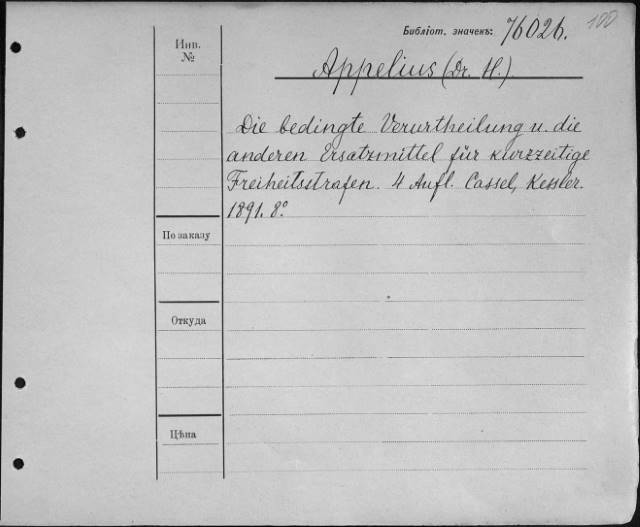 100
Библіот. значекъ: 76026.
Инв.
№
Appelius (Dr. H.).
Die bedingte Verurtheilung u. die
anderen Ersatzmittel für kurzzeitige
Freiheitsstrafen. 4 Aufl. Cassel, Kessler.
1891. 8º
По заказу
Откуда
Цѣна